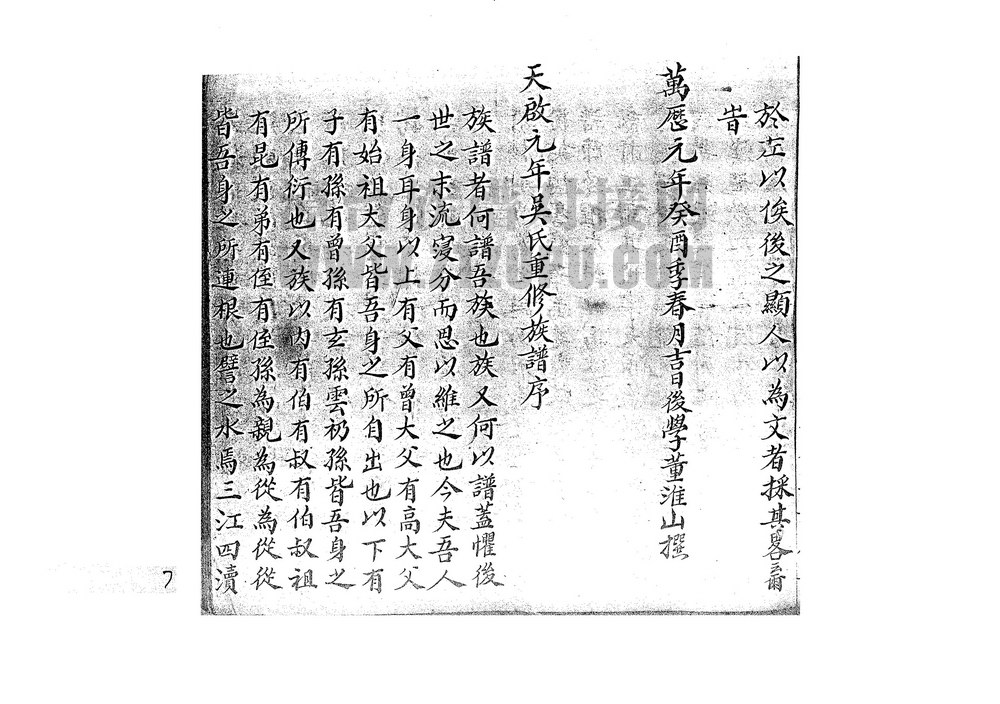 於左以俟後之顯人以為文者採其畧爾
旹
萬厯元年癸酉季春月吉日後學董淮山撰
天啟元年吳氏重修族譜序
族譜者何譜吾族也族又何以譜蓋懼後
世之末流寖分而思以維之也今夫吾人
一身耳身以上有父有曾大父有高大父
有始祖大父皆吾身之所自出也以下有
子有孫有曾孫有玄孫雲礽孫皆吾身之
所傳衍也又族以內有伯有叔有伯叔祖
有昆有弟有侄有侄孫為親為從為從從
皆吾身之所連根也譬之水焉三江四瀆
7